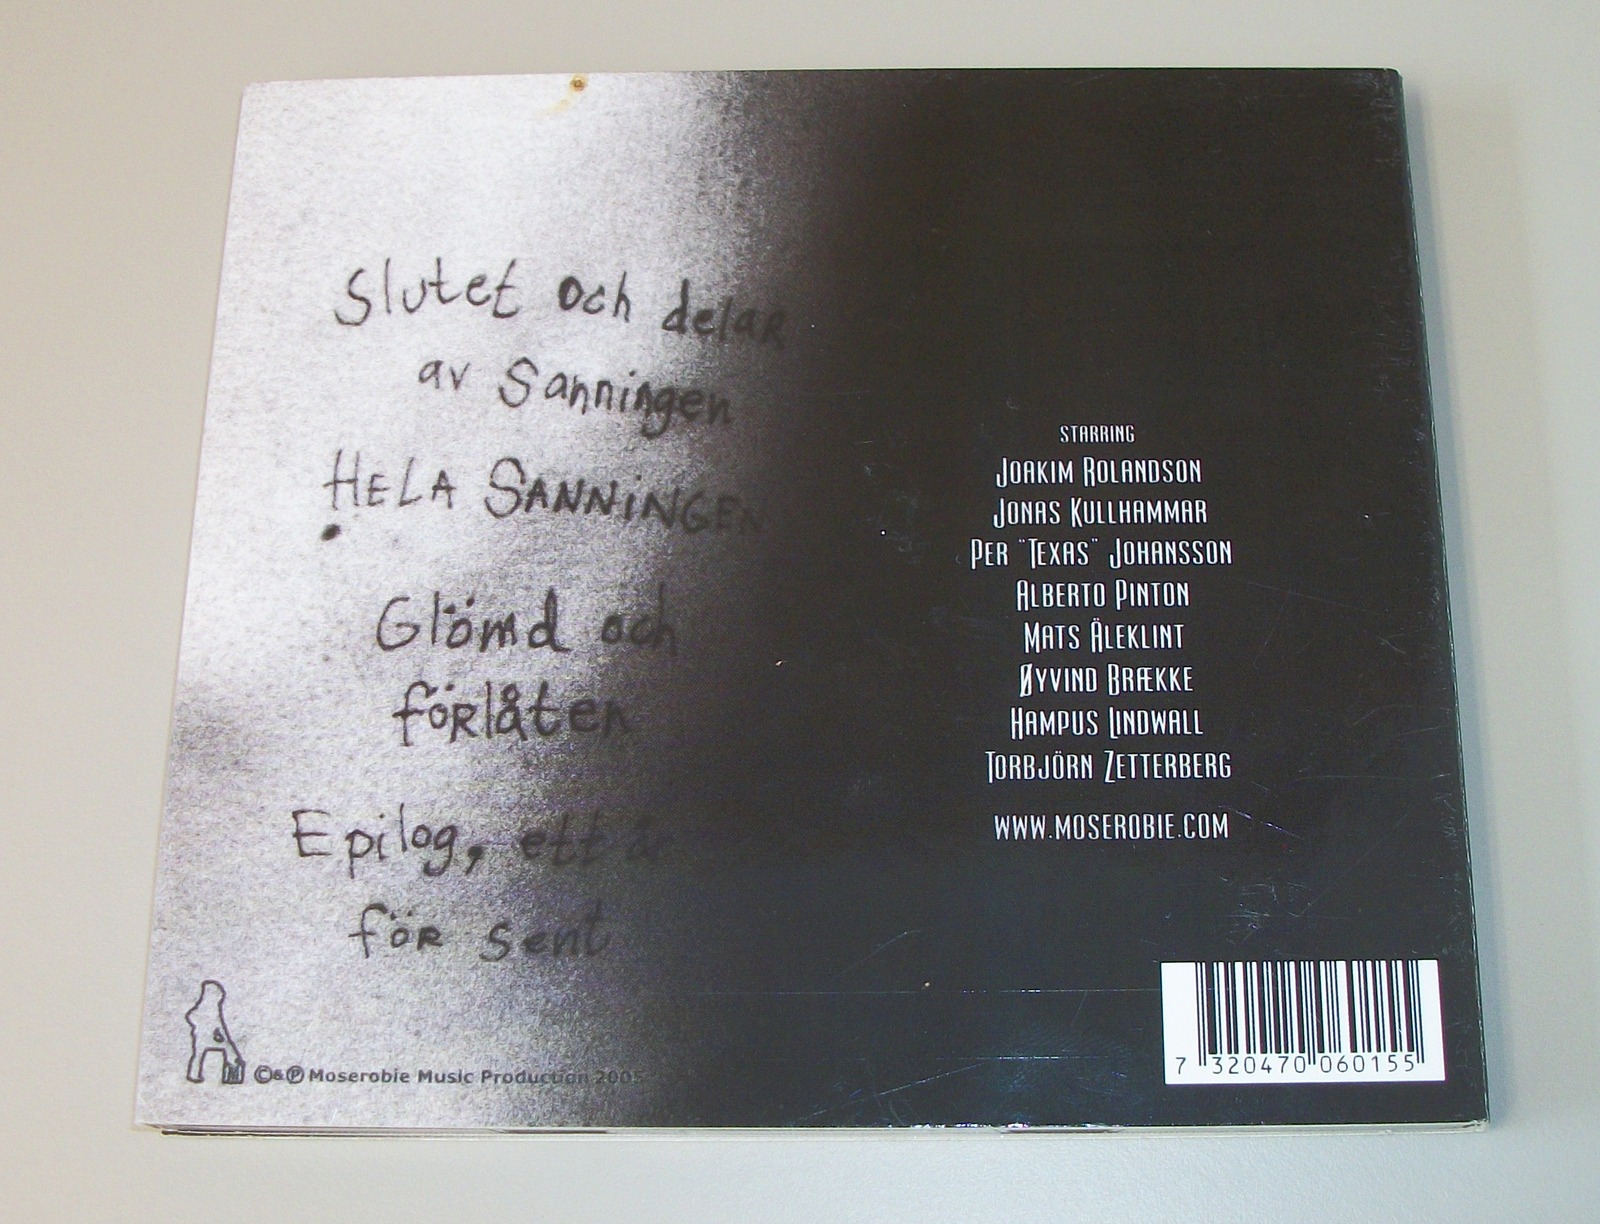 Slutet och delar
av Sanningen
HELA SANNINGEN
Glömd och
förlåten
Epilog, ett år
för sent
STARRING
JOAKIM ROLANDSON
JONAS KULLHAMMAR
PER "TEXAS" JOHANSSON
ALBERTO PINTON
MATS ÄLEKLINT
ØYVIND BRÆKKE
HAMPUS LINDWALL
TORBJÖRN ZETTERBERG
WWW.MOSEROBIE.COM
©&℗ Moserobie Music Production 2005
7 320470 060155